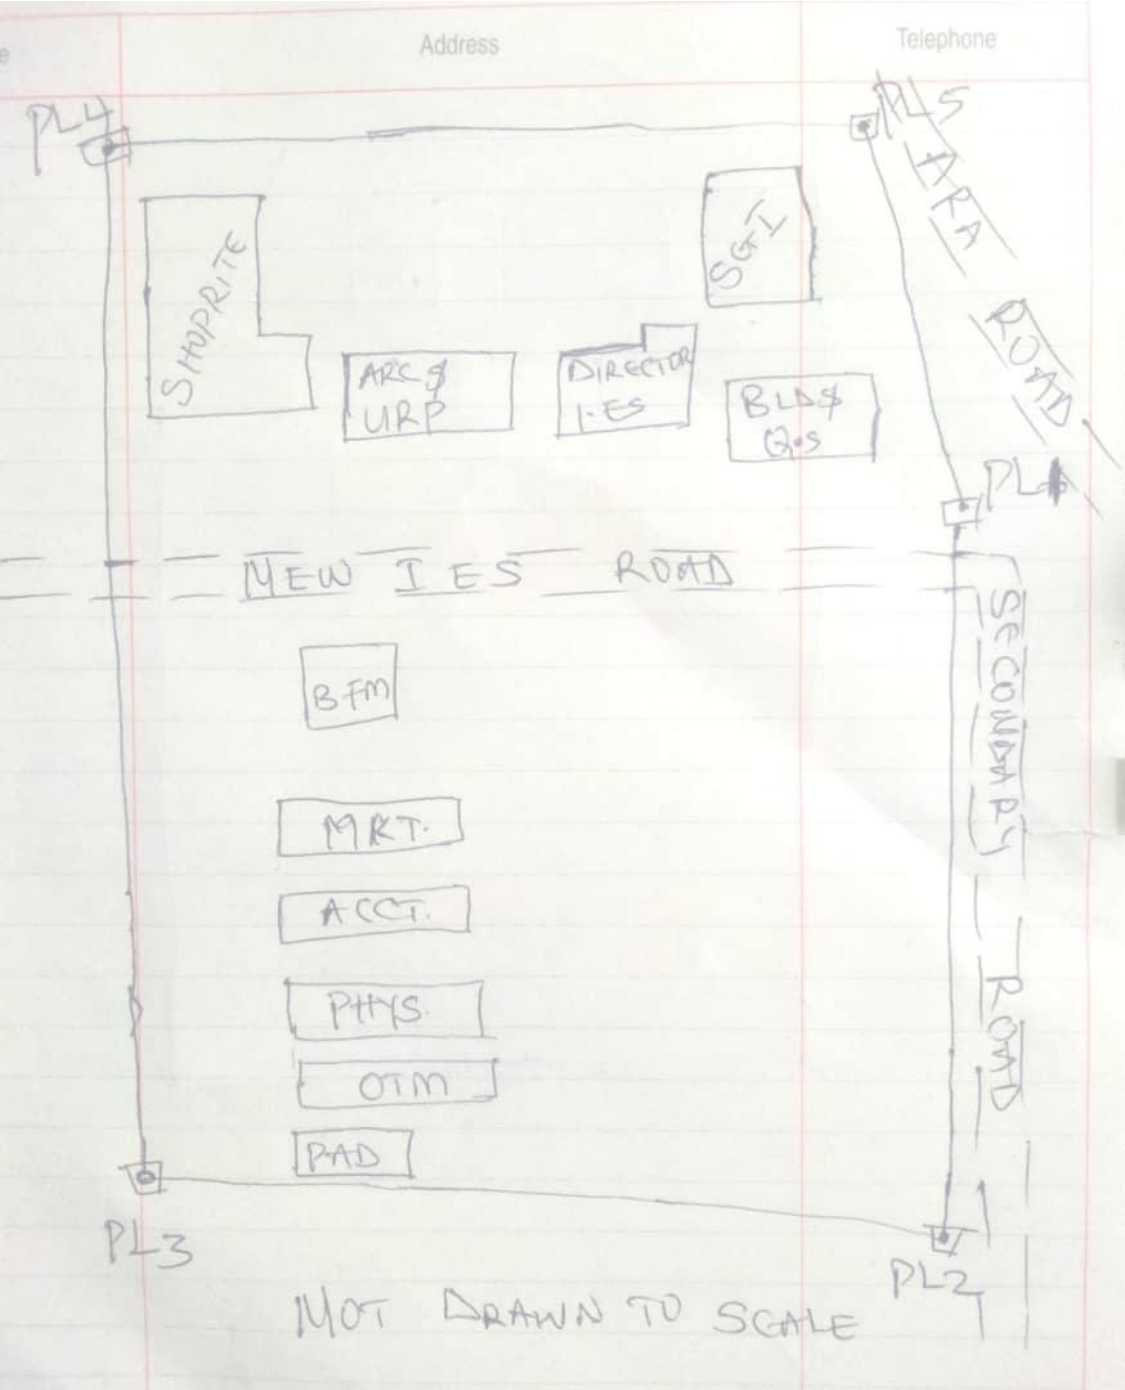 e
Address
Telephone
PL4
PL5
ARA ROAD
SHOPRITE
SGI
ARC $
URP
DIRECTOR
I-ES
BLD $
Q.S
PL1
NEW IES ROAD
SECONDARY ROAD
BFM
MRKT.
ACCT.
PHYS.
OTM
PAD
PL3
PL2
NOT DRAWN TO SCALE